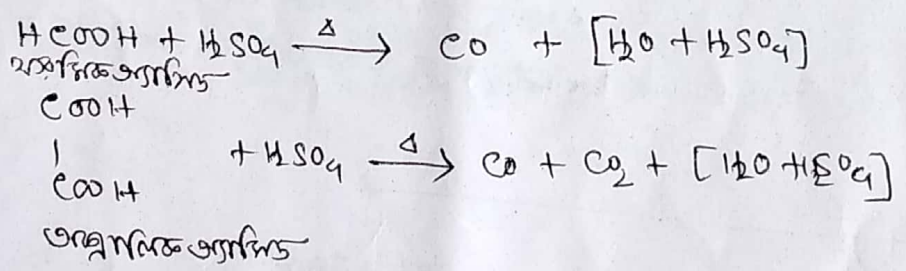 HCOOH + H2SO4 —Δ→ CO + [H2O + H2SO4]
ফরমিক অ্যাসিড
COOH
| + H2SO4 —Δ→ CO + CO2 + [H2O + H2SO4]
COOH
অক্সালিক অ্যাসিড